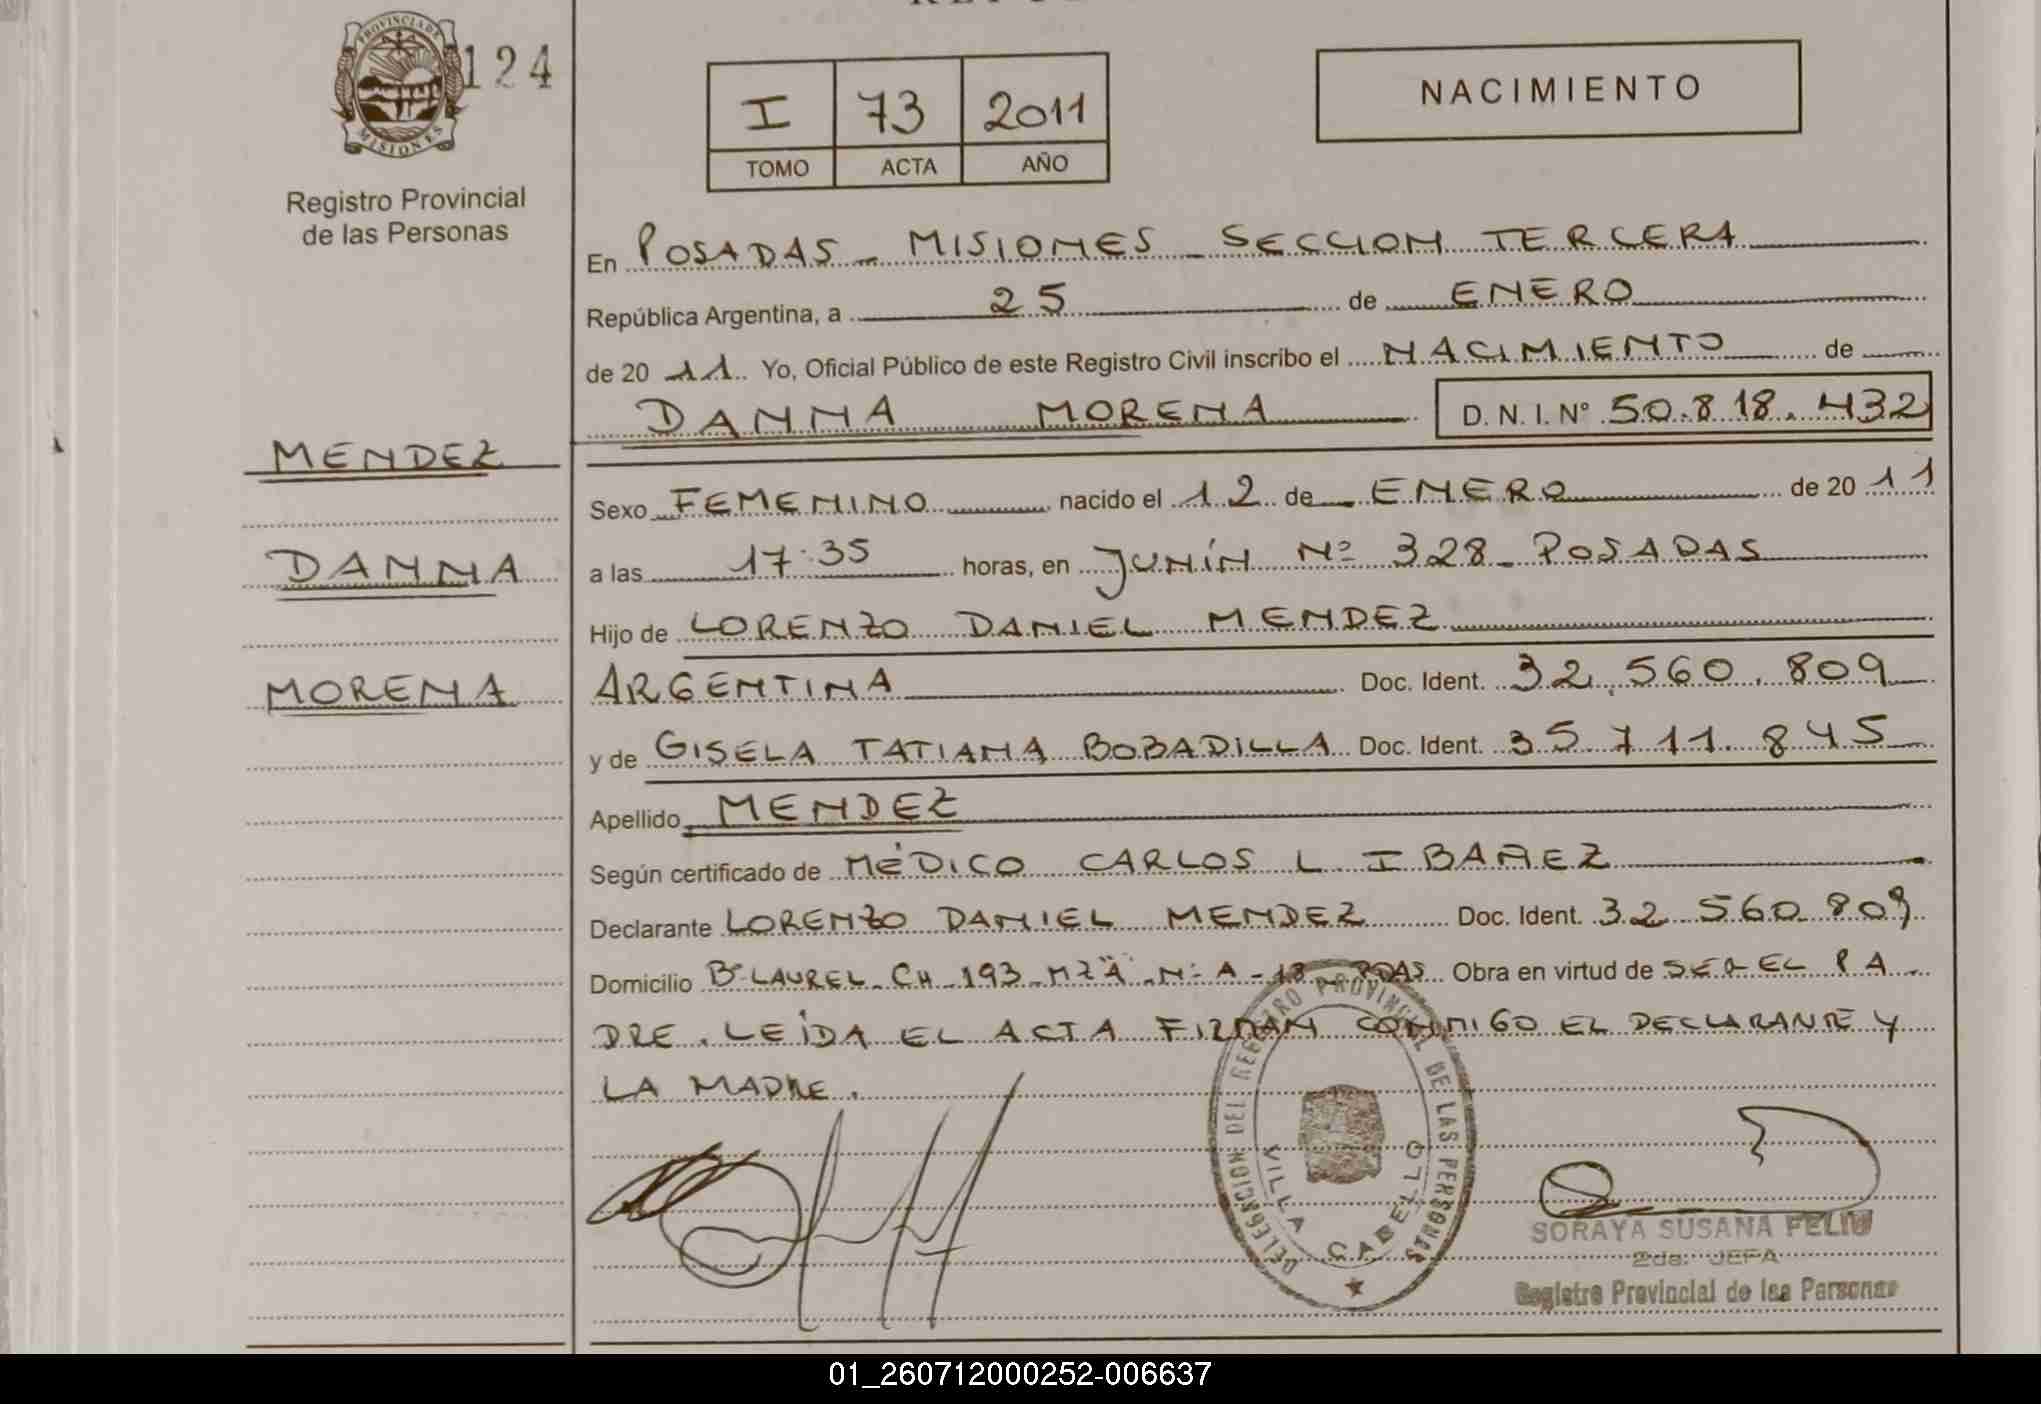 PROVINCIA DE
MISIONES
124
Registro Provincial
de las Personas
I 73 2011
TOMO ACTA AÑO
NACIMIENTO
En POSADAS - MISIONES - SECCION TERCERA
República Argentina, a 25 de ENERO
de 20 11. Yo, Oficial Público de este Registro Civil inscribo el NACIMIENTO de
DANNA MORENA D. N. I. Nº 50.818.432
MENDEZ
DANNA
MORENA
Sexo FEMENINO nacido el 12 de ENERO de 20 11
a las 17:35 horas, en JUNÍN Nº 328 - POSADAS
Hijo de LORENZO DANIEL MENDEZ
ARGENTINA Doc. Ident. 32.560.809
y de GISELA TATIANA BOBADILLA Doc. Ident. 35.711.845
Apellido MENDEZ
Según certificado de MÉDICO CARLOS L IBAÑEZ
Declarante LORENZO DANIEL MENDEZ Doc. Ident. 32 560 809
Domicilio Bº LAUREL - CH - 193 - MZ "A" - Nº A - 18 - PDAS Obra en virtud de SER EL PA
DRE. LEÍDA EL ACTA FIRMAN CONMIGO EL DECLARANTE Y
LA MADRE.
DELEGACION DEL REGISTRO PROVINCIAL DE LAS PERSONAS
VILLA CABELLO
SORAYA SUSANA FELIU
2da. JEFA
Registro Provincial de las Personas
01_260712000252-006637